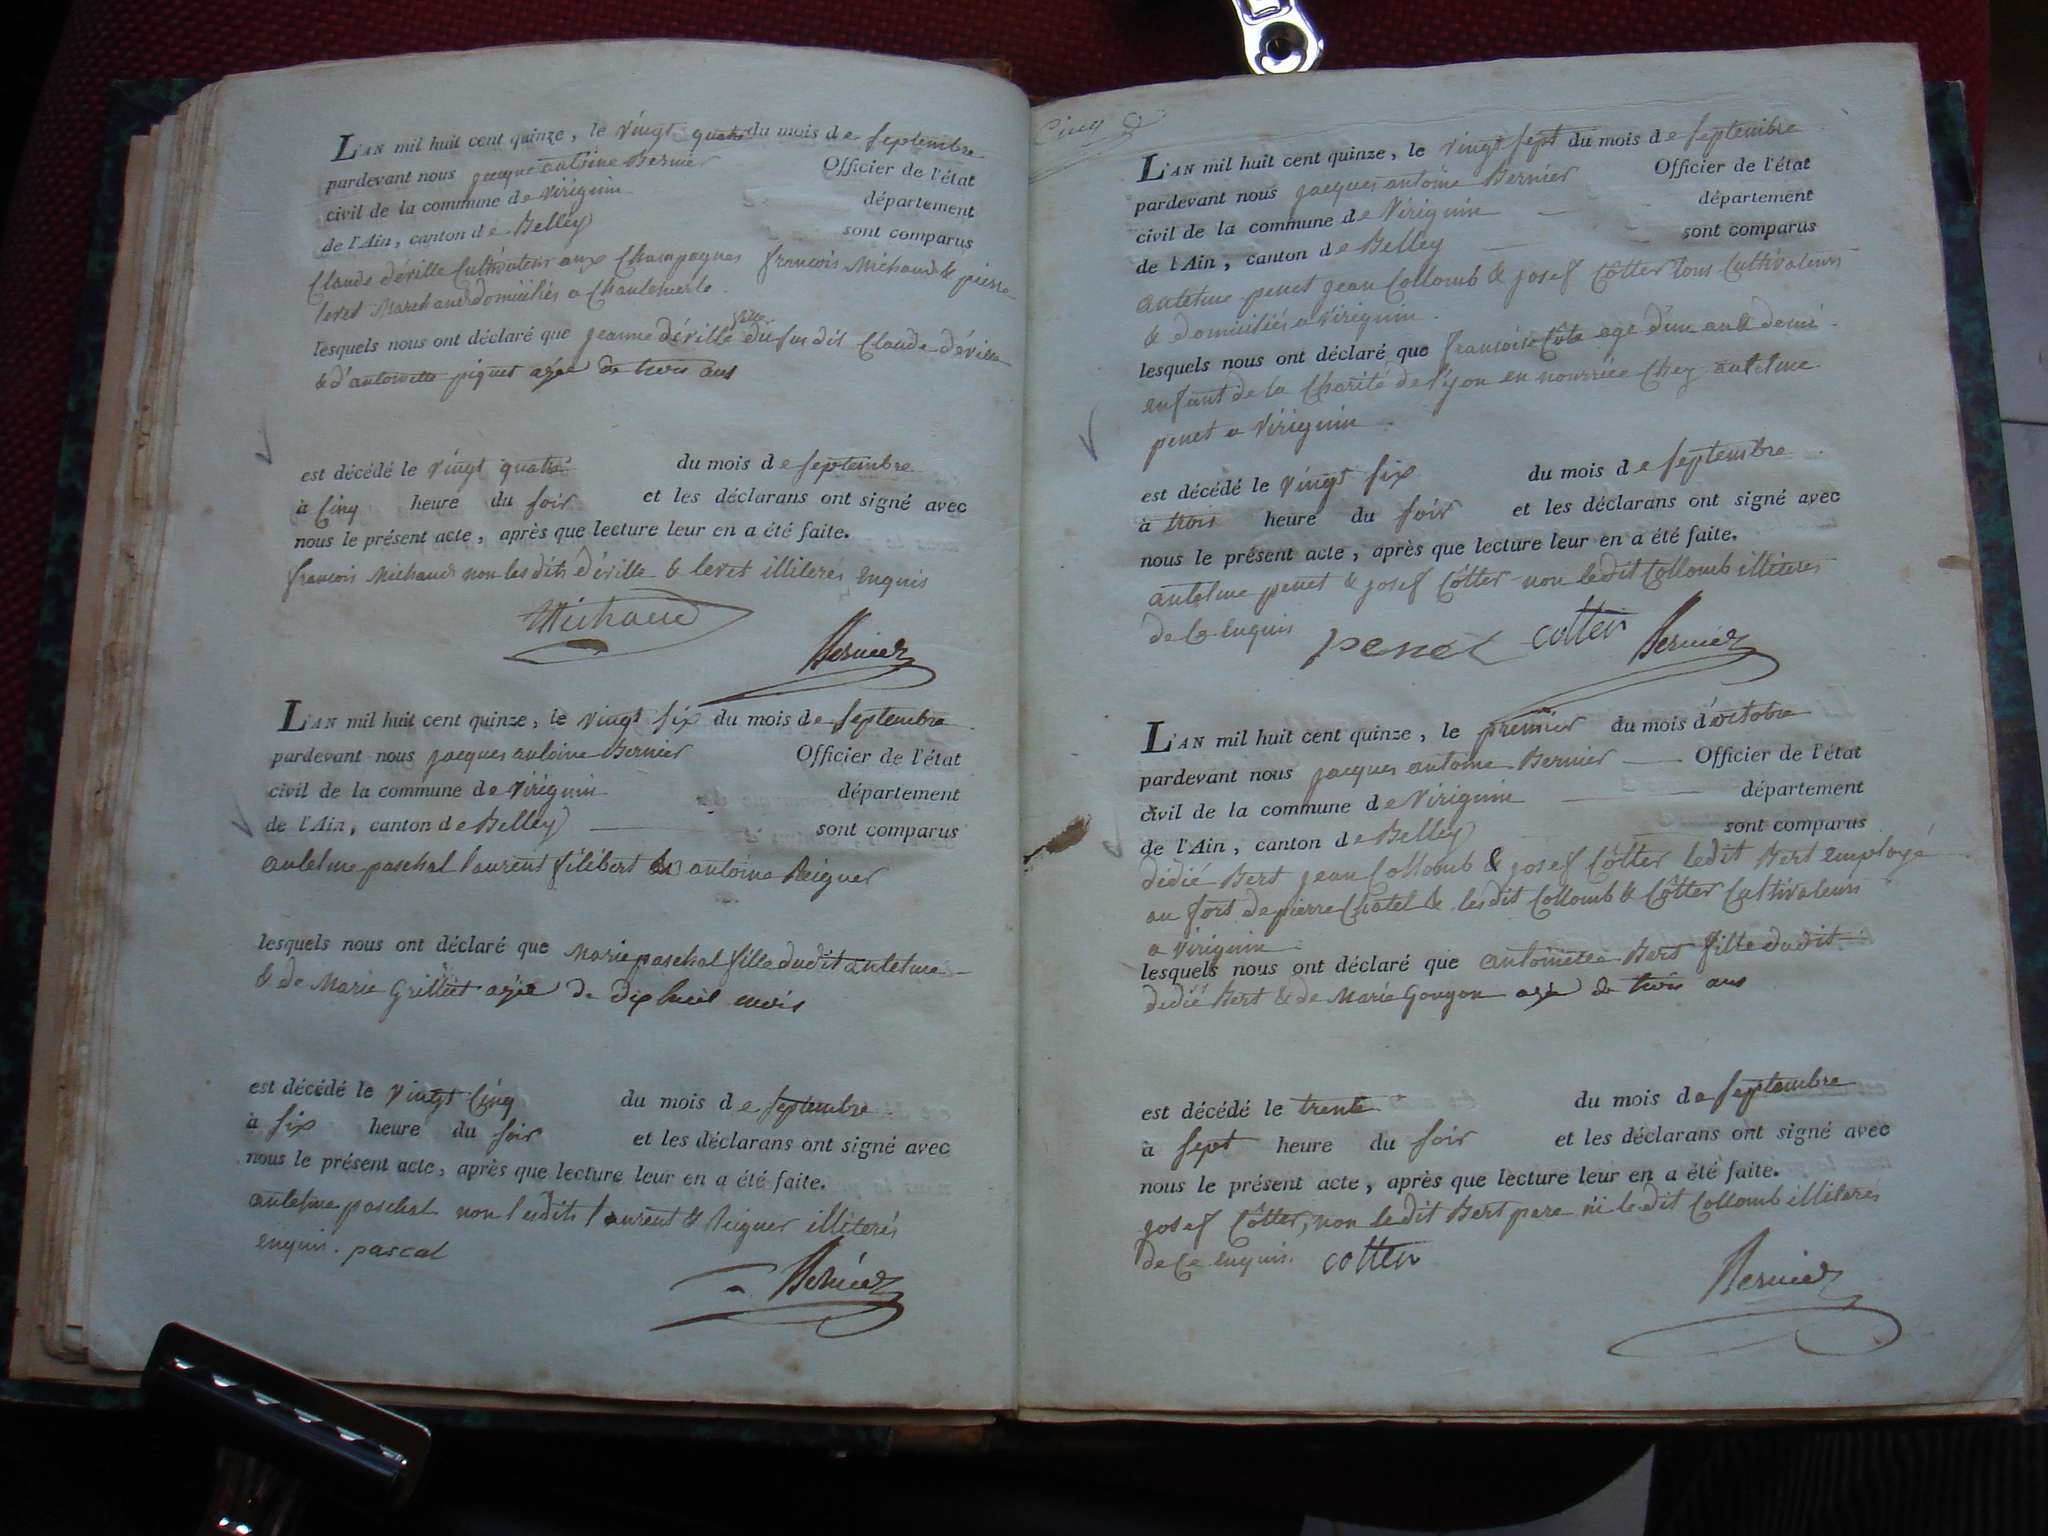 L'AN mil huit cent quinze, le vingt quatre du mois de septembre
pardevant nous jacques antoine Bernier Officier de l'état
civil de la commune de Virignin département
de l'Ain, canton de Belley sont comparus
Claude déville Cultivateur aux Champagnes francois Michaud & pierre
levet Marchand domiciliés a Chantemerle
lesquels nous ont déclaré que jeanne déville fille du susdit Claude déville
& d'antoinette piquet agée de trois ans
est décédé le vingt quatre du mois de septembre
à Cinq heure du soir et les déclarans ont signé avec
nous le présent acte, après que lecture leur en a été faite.
francois Michaud non lesdits déville & levet illiterés enquis
Michaud
Bernier
L'AN mil huit cent quinze, le vingt six du mois de septembre
pardevant nous jacques antoine Bernier Officier de l'état
civil de la commune de Virignin département
de l'Ain, canton de Belley sont comparus
antelme paschal laurent filibert & antoine Reigner
lesquels nous ont déclaré que Marie paschal fille dudit antelme
& de Marie Grillet agée de dix huit mois
est décédé le vingt Cinq du mois de septembre
à six heure du soir et les déclarans ont signé avec
nous le présent acte, après que lecture leur en a été faite.
antelme paschal non lesdits laurent & Reigner illiterés
enquis. pascal
Bernier
Cinq
L'AN mil huit cent quinze, le vingt sept du mois de septembre
pardevant nous jacques antoine Bernier Officier de l'état
civil de la commune de Virignin département
de l'Ain, canton de Belley sont comparus
antelme penet jean Collomb & josef Côtter tous Cultivateurs
& domiciliés a Virignin.
lesquels nous ont déclaré que francoise Côte age d'un an & demi
enfant de la Charité de lyon en nourrice Chez antelme
penet a Virignin
est décédé le vingt six du mois de septembre
à trois heure du soir et les déclarans ont signé avec
nous le présent acte, après que lecture leur en a été faite.
antelme penet & josef Côtter non ledit Collomb illiteres
de Ce enquis penet cotter Bernier
L'AN mil huit cent quinze, le premier du mois d'octobre
pardevant nous jacques antoine Bernier Officier de l'état
civil de la commune de Virignin département
de l'Ain, canton de Belley sont comparus
dédié Bert jean Collomb & josef Côtter ledit Bert employé
au fort de pierre Chatel & lesdit Collomb & Côtter Cultivateurs
a Virignin
lesquels nous ont déclaré que antoinette Bert fille dudit
dedié Bert & de Marie Goujon agé de trois ans
est décédé le trente du mois de septembre
à sept heure du soir et les déclarans ont signé avec
nous le présent acte, après que lecture leur en a été faite.
josef Côtter, non ledit Bert pere ni ledit Collomb illiterés
de Ce enquis. cotter
Bernier